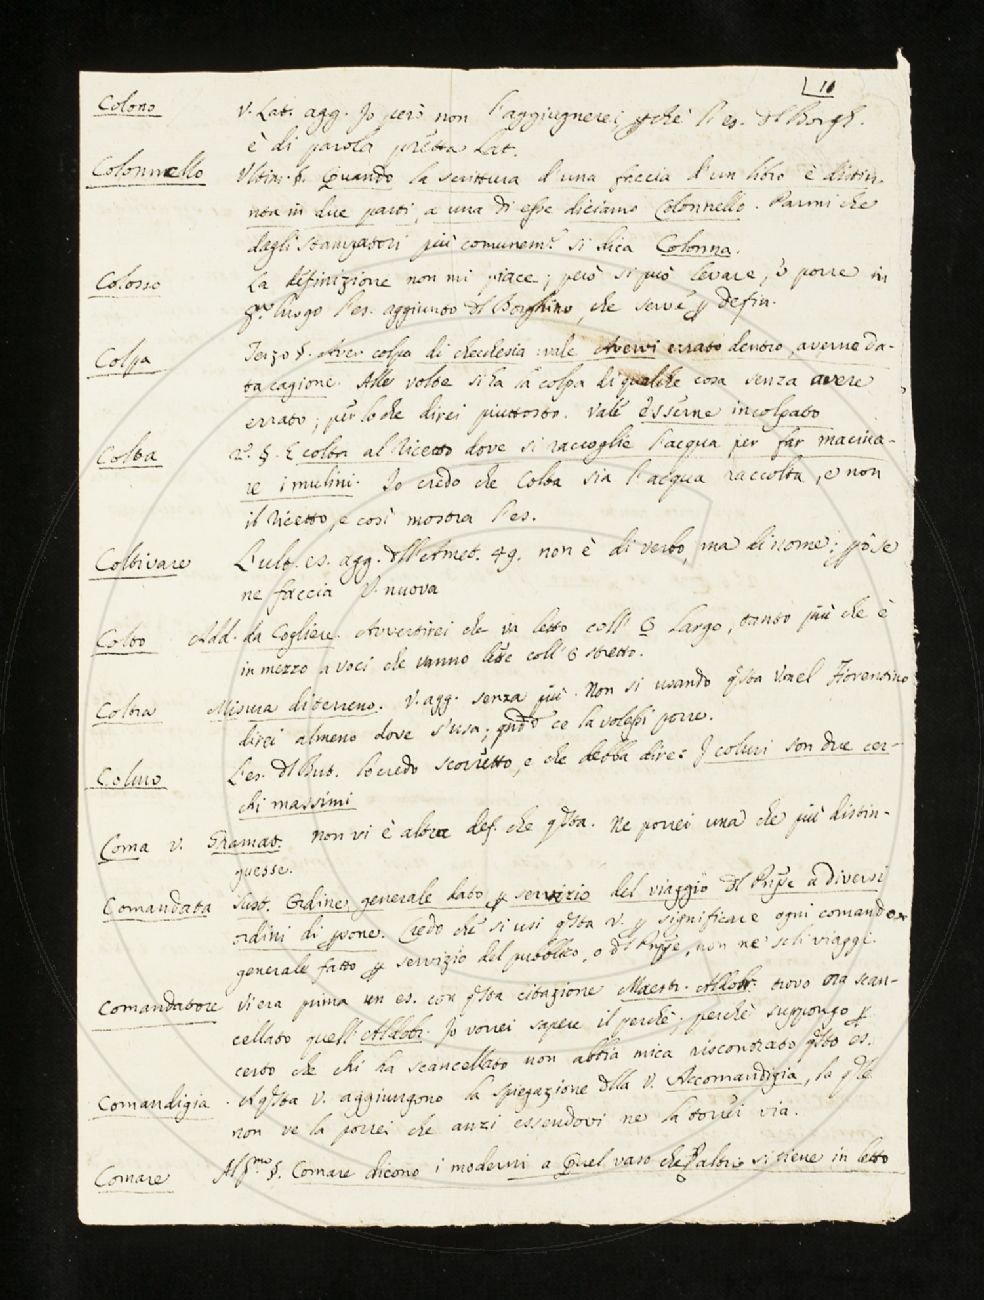 11
Colono V. Lat. agg. Io però non l'aggiugnerei, pchè l'es. dl Borgh.
è di parola pretta Lat.
Colonnello Ultim. §. Quando la scrittura d'una faccia d'un libro è distin-
nta in due parti, a una di esse diciamo Colonnello. Parmi che
dagli stampatori più comunem.e si dica Colonna.
Colosso La definizione non mi piace; però si può levare, e porre in
luogo l'es. aggiunto dl Borghino, che serve p defin.
Colpa Terzo §. Aver colpa di checchesia: vale Avervi errato dentro, averne da-
ta cagione. Alle volte si ha la colpa di qualche cosa senza avere
errato; per lo che direi piuttosto. Vale esserne incolpato
Colta 2.o §. E colta al Ricetto dove si raccoglie l'acqua per far macina-
re i mulini. Io credo che Colta sia l'acqua raccolta, e non
il ricetto, e così mostra l'es.
Coltivare L'ult. es. agg. dll'Amet. 49. non è di verbo, ma di nome; pò se
ne faccia V. nuova
Colto Add. da Cogliere. Avvertirei che va letto coll'O Largo, tanto più che è
in mezzo a voci che vanno lette coll'O stretto.
Coltra Misura di terreno. V. agg. senza più. Non si usando qsta V. nel Fiorentino
direi almeno dove s'usa; qndo ce la volessi porre.
Coluro L'es. dl But. lo credo scorretto, e che debba dire: I coluri son due cer-
chi massimi
Coma v. Gramat. non vi è altra def. che qsta. Ne porrei una che più distin-
guesse.
Comandata Sust. Ordine generale dato p servizio del viaggio dl Prpe a diversi
ordini di psone. Credo che si usi qsta V. p significare ogni comando
generale fatto p servizio del pubblico, o dl Prpe, non ne' soli viaggi.
Comandatore Vi era prima un es. con qsta citazione Maestr. Aldobr. trovo ora scan-
cellato quell'Aldobr. Io vorrei sapere il perchè; perchè suppongo p
certo che chi ha scancellato non abbia mica riscontrato qsto es.
Comandigia A qsta V. aggiungono la spiegazione dlla V. Accomandigia, la qle
non ve la porrei che anzi essendovi ne la torrei via.
Comare §. Comare dicono i moderni a Quel vaso che si tiene in letto